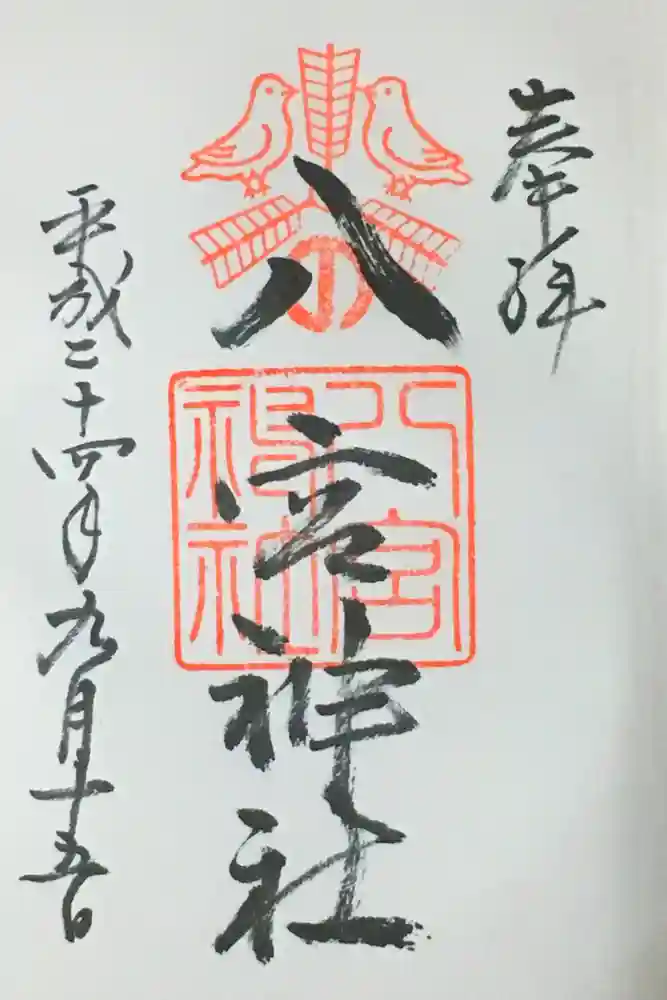 奉拝
八宮神社
八宮
神社
平成二十四年九月十五日